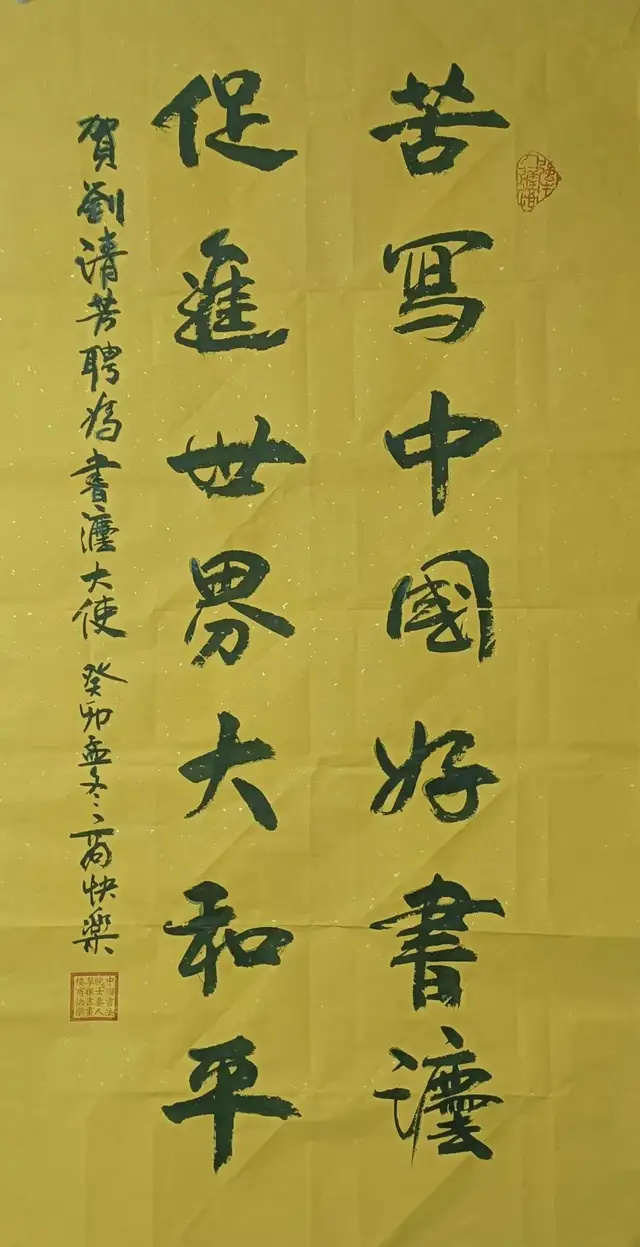 苦寫中國好書灋
促進世界大和平
賀劉清芳聘為書灋大使 癸卯孟冬商快樂